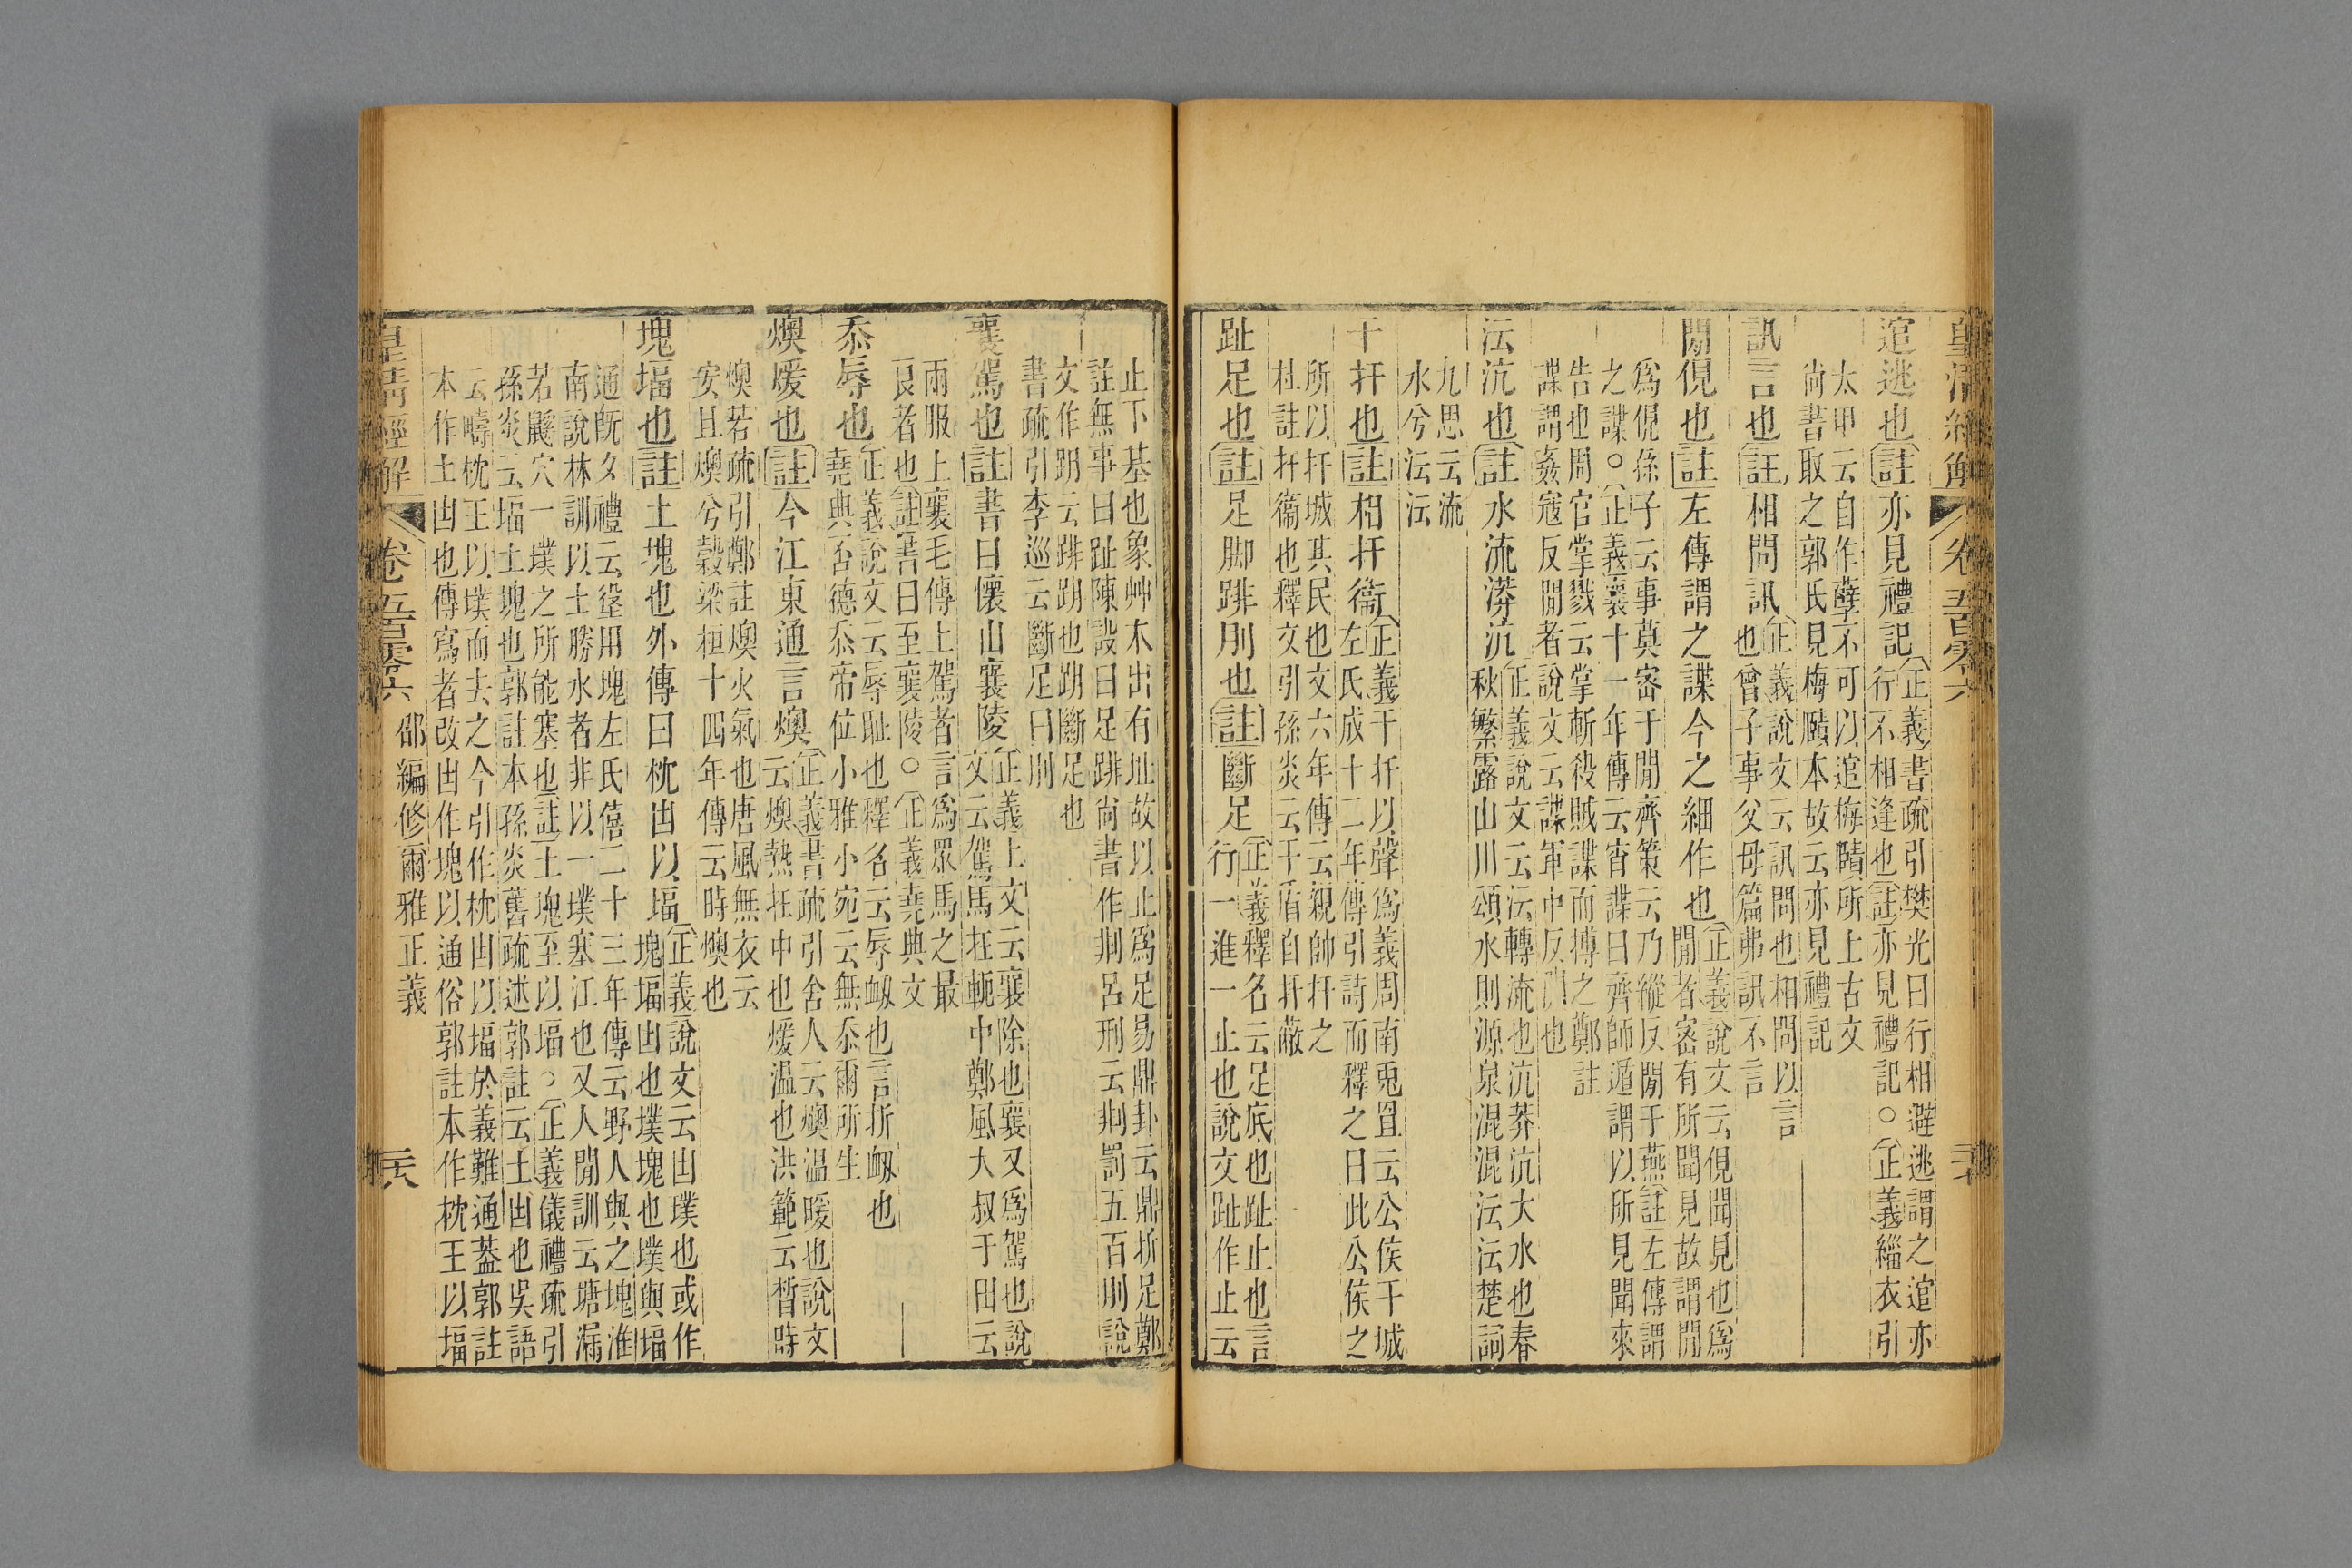 皇清經解 卷五百零六
逭逃也註亦見禮記
正義書疏引樊光曰行相避逃謂之逭亦
行不相逢也註亦見禮記○正義緇衣引
太甲云自作孽不可以逭梅賾所上古文
尚書取之郭氏見梅賾本故云亦見禮記
訊言也註相問訊
正義說文云訊問也相問以言
也曾子事父母篇弗訊不言
閒俔也註左傳謂之諜今之細作也
正義說文云俔聞見也爲
閒者密有所聞見故謂閒
爲俔孫子云事莫密于閒齊策云乃縱反閒于燕註左傳謂
之諜○正義襄十一年傳云宵諜曰齊師遁謂以所見聞來
告也周官掌戮云掌斬殺賊諜而搏之鄭註
諜謂姦寇反閒者說文云諜軍中反閒也
沄沆也註水流漭沆
正義說文云沄轉流也沆莽沆大水也春
秋繁露山川頌水則源泉混混沄沄楚詞
九思云流
水兮沄沄
干扞也註相扞衞
正義干扞以聲爲義周南兎罝云公侯干城
左氏成十二年傳引詩而釋之曰此公侯之
所以扞城其民也文六年傳云親帥扞之
杜註扞衞也釋文引孫炎云干盾自扞蔽
趾足也註足脚跸刖也註斷足
正義釋名云足底也趾止也言
行一進一止也說文趾作止云
止下基也象艸木出有址故以止爲足易鼎卦云鼎折足鄭
註無事曰趾陳設曰足跸尚書作剕呂刑云剕罰五百刖說
文作跀云跸跀也跀斷足也
書疏引李巡云斷足曰刖
襄駕也註書曰懷山襄陵
正義上文云襄除也襄又爲駕也說
文云駕馬在軛中鄭風大叔于田云
兩服上襄毛傳上駕者言爲眾馬之最
良者也註書曰至襄陵○正義堯典文
忝辱也
正義說文云辱耻也釋名云辱衂也言折衂也
堯典否德忝帝位小雅小宛云無忝爾所生
燠煖也註今江東通言燠
正義書疏引舍人云燠溫暖也說文
云燠熱在中也煖溫也洪範云晳時
燠若疏引鄭註燠火氣也唐風無衣云
安且燠兮穀梁桓十四年傳云時燠也
塊堛也註土塊也外傳曰枕凷以堛
正義說文云凷墣也或作
塊堛凷也墣塊也墣與堛
通旣夕禮云垼用塊左氏僖二十三年傳云野人與之塊淮
南說林訓以土勝水者非以一墣塞江也又人閒訓云塘漏
若鼷穴一墣之所能塞也註土塊至以堛○正義儀禮疏引
孫炎云堛土塊也郭註本孫炎舊疏述郭註云土凷也吳語
云疇枕王以墣而去之今引作枕凷以堛於義難通葢郭註
本作土凷也傳寫者改凷作塊以通俗郭註本作枕王以堛
皇清經解 卷五百零六 邵編修爾雅正義